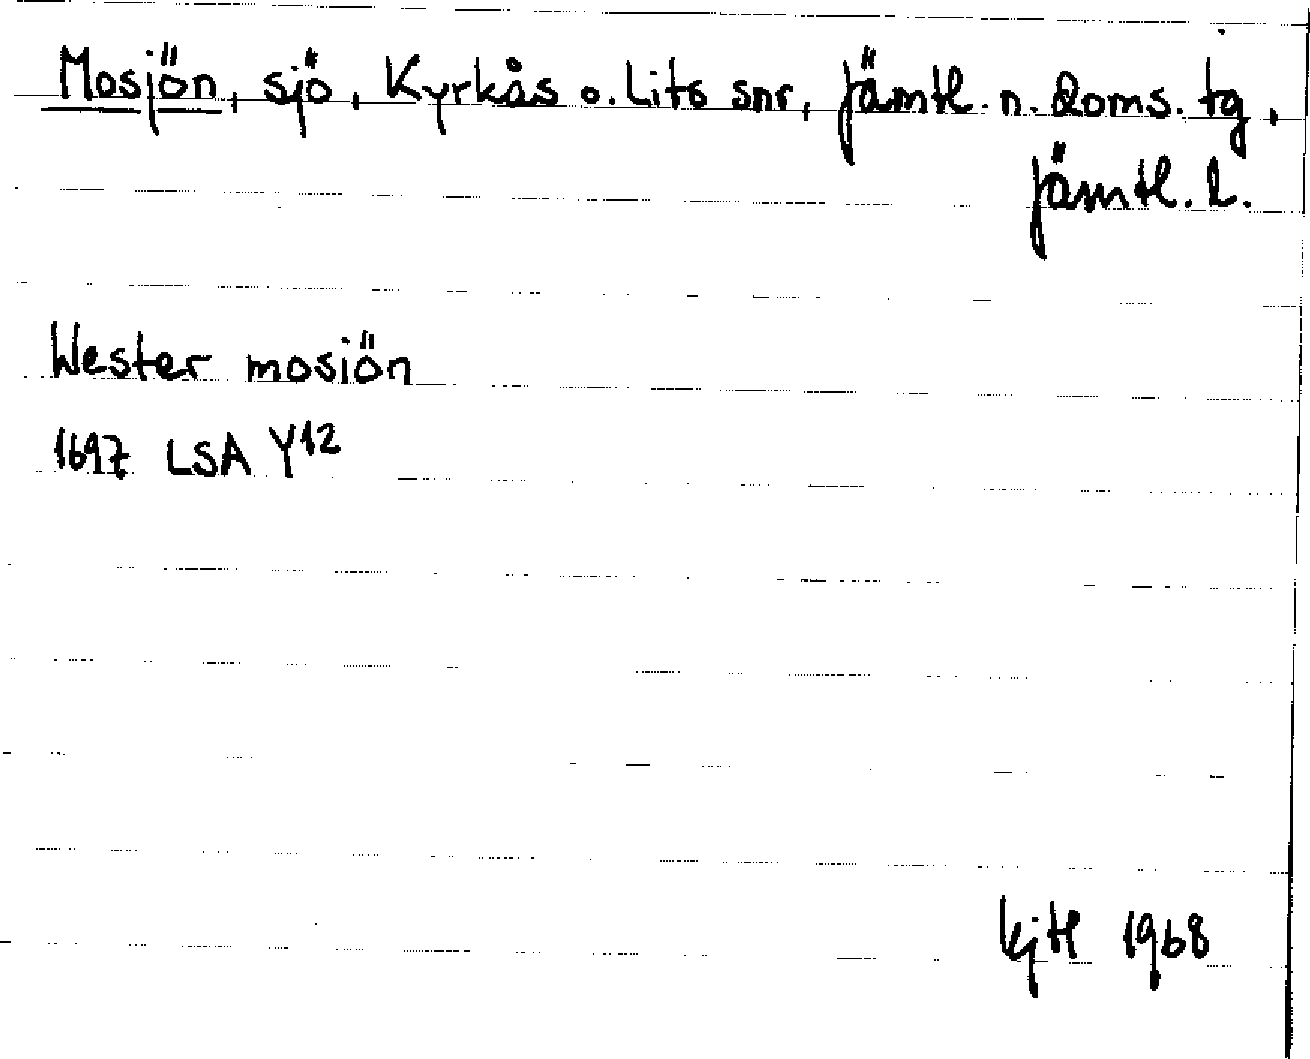 Mosjön, sjö, Kyrkås o. Lits snr, Jämtl. n. doms. tg,
Jämtl. l.
Wester mosiön
1697 LSA Y12
1968